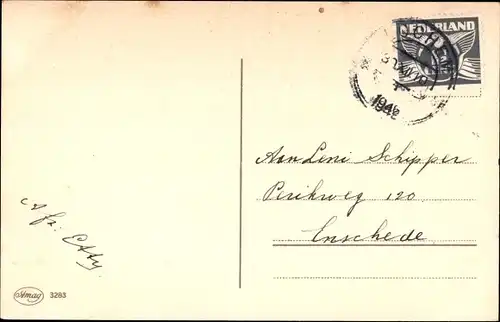 NEDERLAND
1942
Aan Leni Schipper
Perikweg 120
Enschede
Afz: Etty
Amag 3283